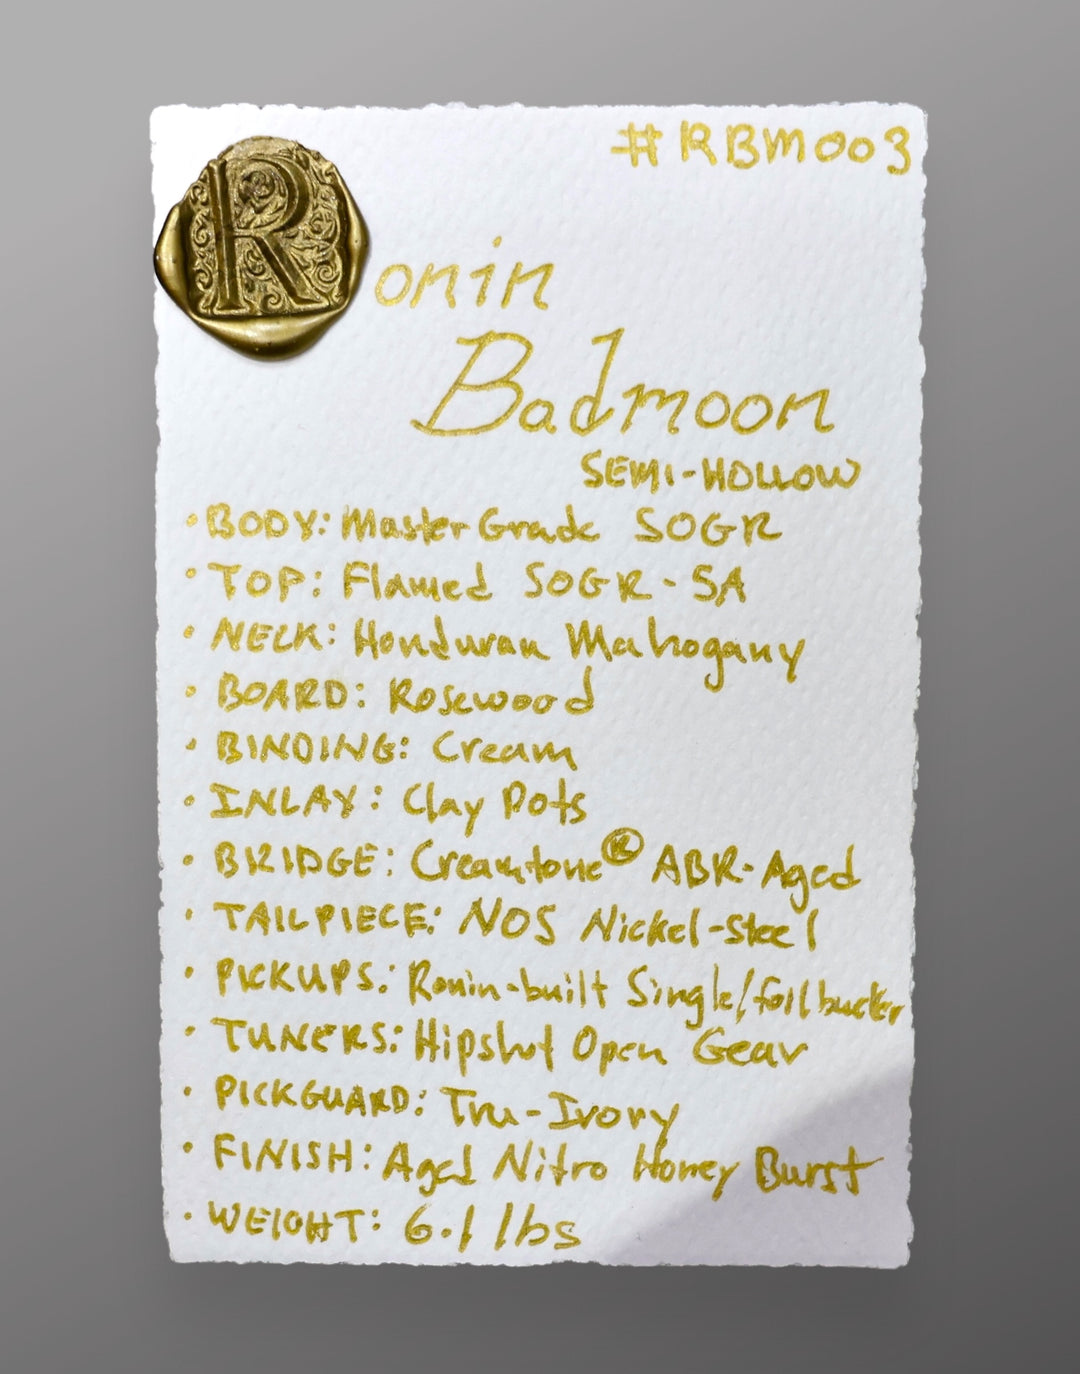 #RBM003
Ronin
Badmoon
SEMI-HOLLOW
• BODY: Master Grade SOGR
• TOP: Flamed SOGR-5A
• NECK: Honduran Mahogany
• BOARD: Rosewood
• BINDING: Cream
• INLAY: Clay Dots
• BRIDGE: Creamtone® ABR-Aged
• TAILPIECE: NOS Nickel-Steel
• PICKUPS: Ronin-built Single/foilbucker
• TUNERS: Hipshot Open Gear
• PICKGUARD: Tru-Ivory
• FINISH: Aged Nitro Honey Burst
• WEIGHT: 6.1 lbs